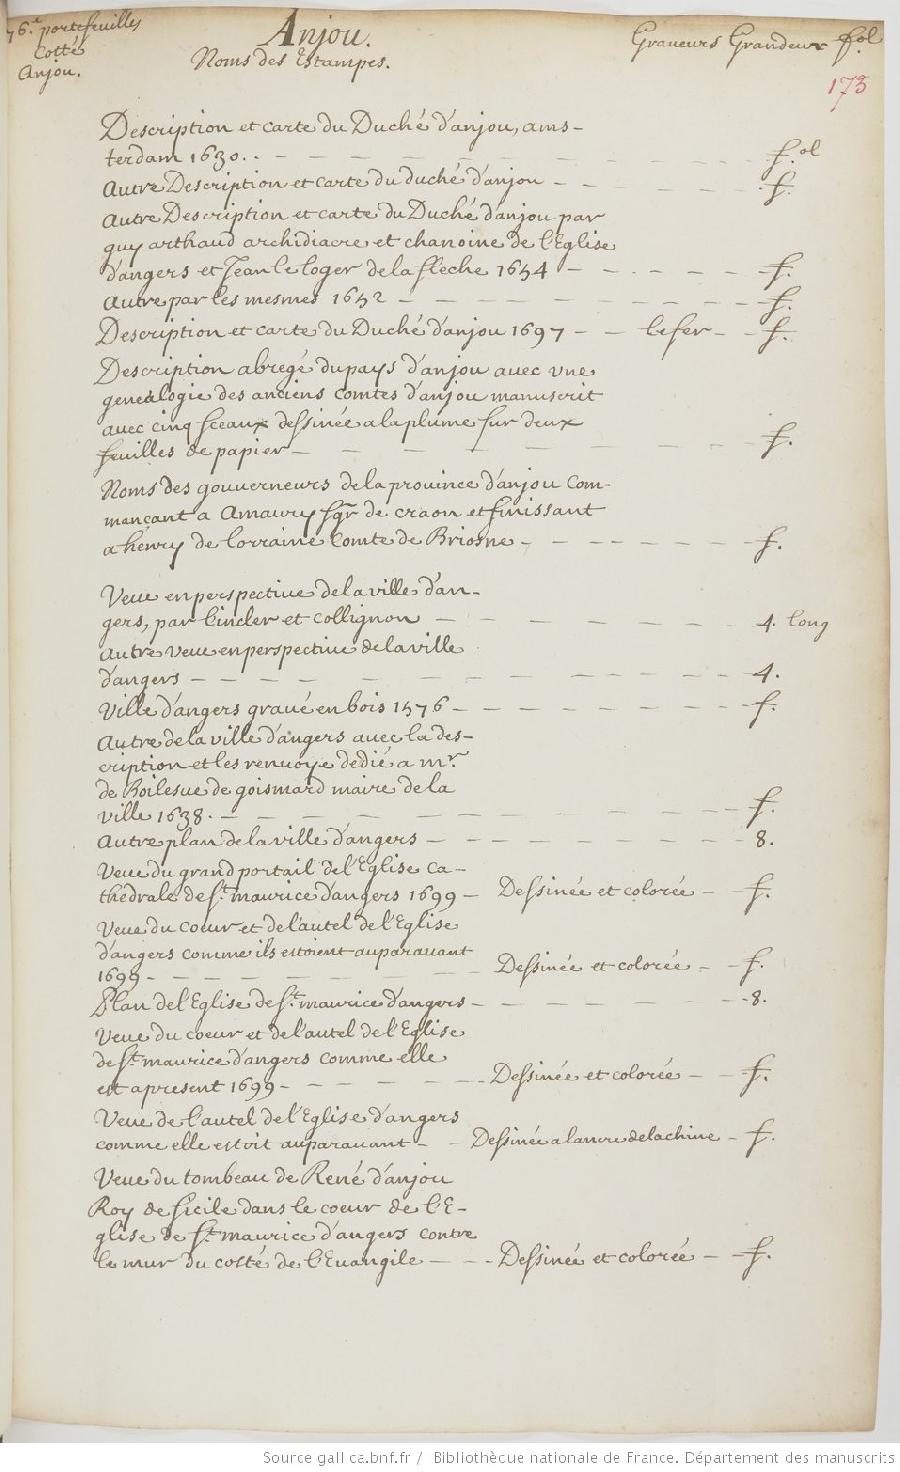 76.e portefeuilles
Cotté
Anjou.
Anjou.
Noms des Estampes.
Graveurs Grandeur f.ol
173
Description et carte du Duché d'anjou, ams-
terdam 1630. f.ol
Autre Description et carte du duché d'anjou f.
Autre Description et carte du Duché d'anjou par
guy arthaud archidiacre et chanoine de l'Eglise
d'angers et Jean le loger de la fleche 1654 f.
Autre par les mesmes 1652 f.
Description et carte du Duché d'anjou 1697 lefer f.
Description abregé du pays d'anjou avec vne
genealogie des anciens comtes d'anjou manuscrit
avec cinq sceaux dessinée a la plume sur deux
feuilles de papier f.
Noms des gouverneurs de la prouince d'anjou com-
mançant a Amaury sgr de craon et finissant
a henry de lorraine Comte de Briosne f.
Veue en perspectiue de la ville d'an-
gers, par lincler et collignon 4. long
Autre veue en perspectiue de la ville
d'angers 4.
Ville d'angers graué en bois 1576 f.
Autre de la ville d'angers avec la des-
cription et les renuoye dedié a mr.
de Boilesue de goismard maire de la
ville 1638. f.
Autre plan de la ville d'angers 8.
Veue du grand portail de l'Eglise ca-
thedrale de st. maurice d'angers 1699 Dessinée et colorée f.
Veue du coeur et de l'autel de l'Eglise
d'angers comme ils estoient auparauant
1699 Dessinée et colorée f.
Plan de l'Eglise de st. maurice d'angers 8.
Veue du coeur et de l'autel de l'Eglise
de st. maurice d'angers comme elle
est apresent 1699 Dessinée et colorée f.
Veue de l'autel de l'Eglise d'angers
comme elle estoit auparauant Dessinée a lancre de la chine f.
Veue du tombeau de René d'anjou
Roy de sicile dans le coeur de l'E-
glise de st. maurice d'angers contre
le mur du costé de l'Euangile Dessinée et colorée f.
Source gallica.bnf.fr / Bibliothèque nationale de France. Département des manuscrits